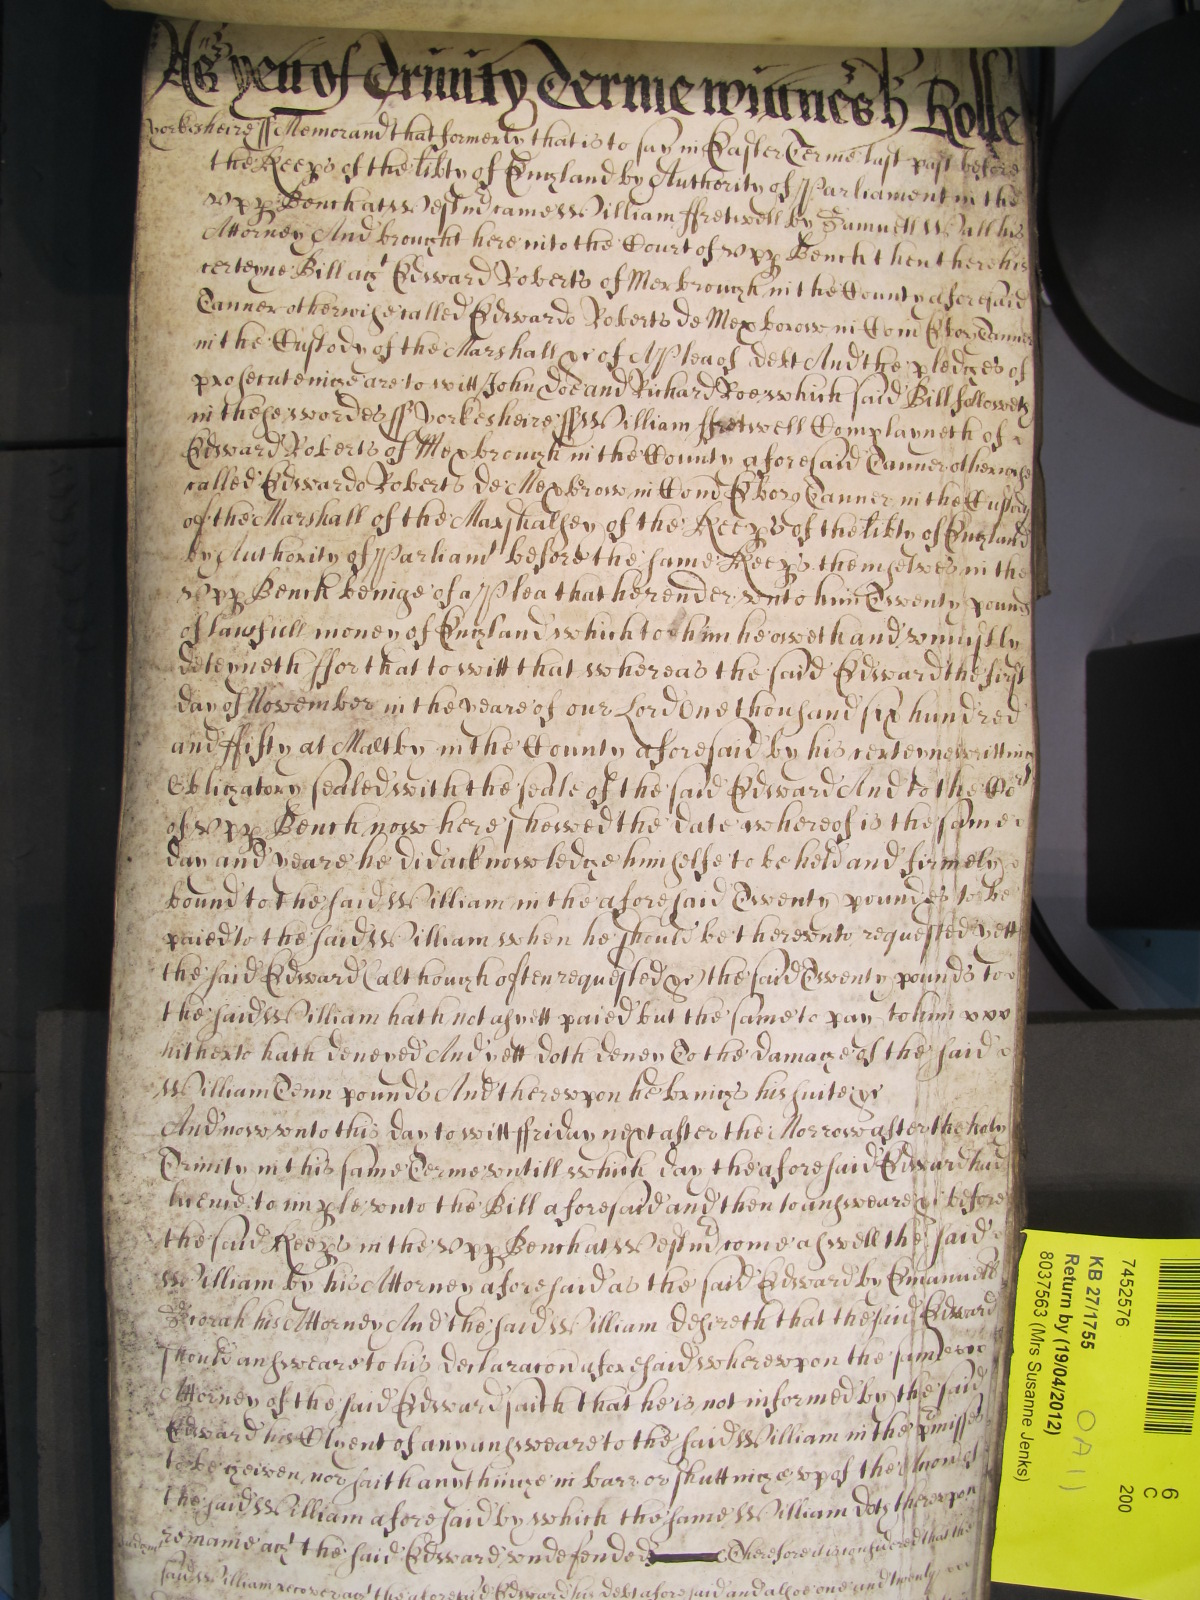 As yett of Trinity Terme wittnes H Rolle
Yorkesheire ss Memorand that formerly that is to say in Easter Terme last past before
the Keeps of the libty of England by Authority of Parliament in the
Upp Bench at Westmd came William ffretwell by Samuell Wall his
Attorney And brought here into the Court of Upp Bench then there his
certeyne Bill agt Edward Roberts of Mexbrough in the County aforesaid
Tanner otherwise called Edwardo Roberts de Mexborow in Com Ebor Tanner
in the Custody of the Marshall &c of A Plea of debt And the pledges of
prosecuteinge are to witt John Doe and Richard Roe which said Bill followeth
in these wordes ss Yorkesheire ss William ffretwell Complayneth of
Edward Roberts of Mexbrough in the County aforesaid Tanner otherwise
called Edwardo Roberts de Mexbrow in Com Ebor Tanner in the Custody
of the Marshall of the Marshalsey of the Keeps of the libty of England
by Authority of Parliamt before the same Keeps themselves in the
Upp Bench beinge of a Plea that he render unto him Twenty pounds
of lawfull money of England which to him he oweth and uniustly
deteyneth ffor that to witt that whereas the said Edward the first
day of November in the yeare of our Lord One thousand six hundred
and ffifty at Maltby in the County aforesaid by his certeyne writtinge
Obligatory sealed with the seale of the said Edward And to the Cort
of Upp Bench now here shewed the date whereof is the same
day and yeare he did acknowledge himselfe to be held and firmely
bound to the said William in the aforesaid Twenty pounds to be
paied to the said William when he should be thereunto requested yett
the said Edward (although often requested &c) the said Twenty pounds to
the said William hath not as yett paied but the same to pay to him
hitherto hath denyed And yett doth deney To the damage of the said
William Tenn pounds And thereupon he bringes his suite &c
And now unto this day to witt ffriday next after the Morrow after the holy
Trinity in this same Terme untill which day the aforesaid Edward had
lycence to imple unto the Bill aforesaid and then to answeare &c before
the said Keeps in the Upp Bench at Westmd come aswell the said
William by his Attorney aforesaid as the said Edward by Emanuell
his Attorney And the said William desireth that the said Edward
should answeare to his declaracon aforesaid whereupon the same
Attorney of the said Edward saith that he is not informed by the said
Edward his Clyent of any answeare to the said William in the pmisses
to be geiven, nor saith anythinge in barr or shuttinge up of the accon of
the said William aforesaid by which the same William doth thereupon
remaine agt the said Edward undefended Therefore it is considered that the
said William recover agt the aforesaid Edward his debt aforesaid and alsoe one and twenty
7452576
KB 27/1755
Return by (19/04/2012)
8037563 (Mrs Susanne Jenks)
OA1
6
C
200